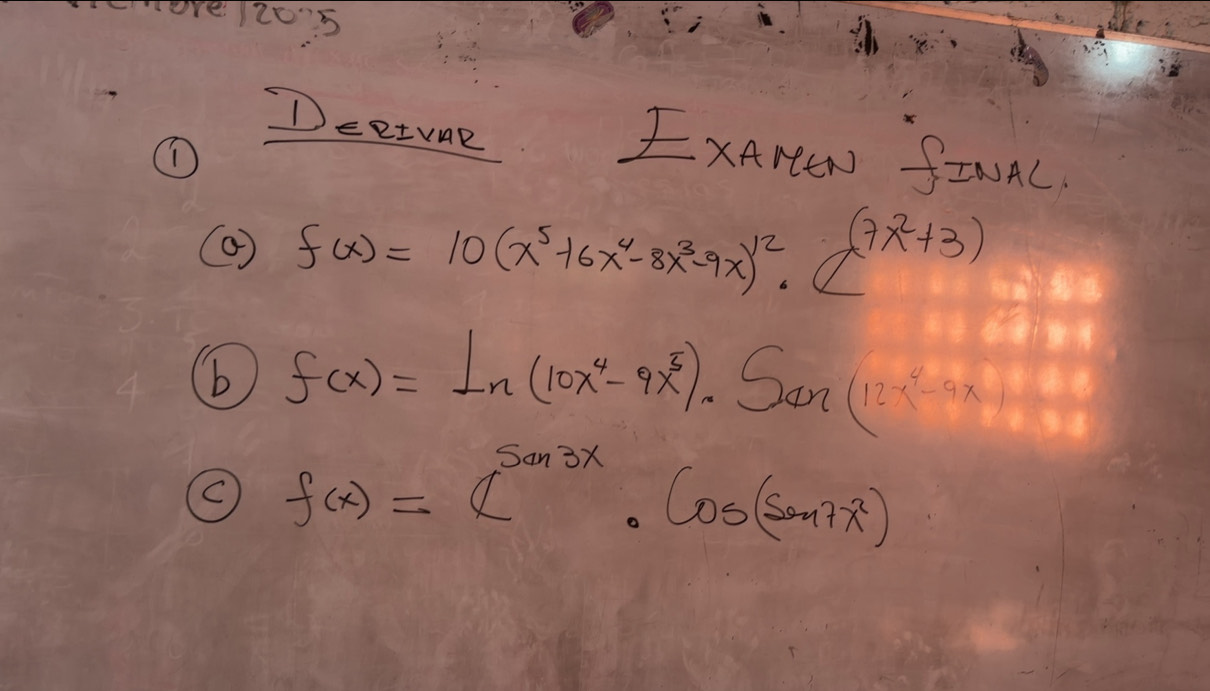 /2025
DERIVAR EXAMEN FINAL.
①
(a) f(x) = 10(x⁵+6x⁴-8x³-9x)¹² . e^(7x²+3)
ⓑ f(x) = Ln(10x⁴-9x⁵). Sen(12x⁴-9x)
ⓒ f(x) = e^Sen3x . Cos(Sen7x²)